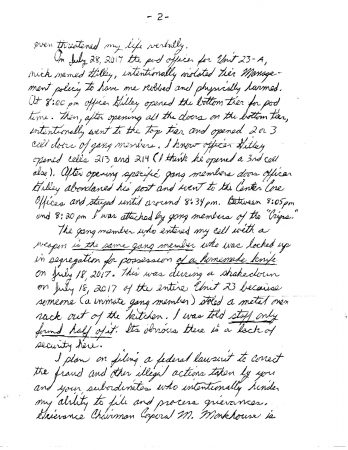 - 2 -
even threatened my life verbally.
On July 28, 2017 the pod officer for Unit 23-A,
nick named Gilley, intentionally violated their Manage-
ment policy to have me robbed and physically harmed.
At 8:00 pm officer Gilley opened the bottom tier for pod
time. Then, after opening all the doors on the bottom tier,
intentionally went to the top tier and opened 2 or 3
cell doors of gang members. I know officer Gilley
opened cells 213 and 214 (I think he opened a 3rd cell
also). After opening specific gang members doors officer
Gilley abandoned his post and went to the Center Core
Offices and stayed until around 8:34 pm. Between 8:05 pm
and 8:30 pm I was attacked by gang members of the "Crips."
The gang member who entered my cell with a
weapon is the same gang member who was locked up
in segregation for possession of a homemade knife
on July 18, 2017. This was during a shakedown
on July 18, 2017 of the entire Unit 23 because
someone (a inmate gang member) stoled a metal oven
rack out of the kitchen. I was told staff only
found half of it. Its obvious there is a lack of
security here.
I plan on filing a federal lawsuit to correct
the fraud and other illegal actions taken by you
and your subordinates who intentionally hinder
my ability to file and process grievances.
Grievance Chairman M. Monkhouse is